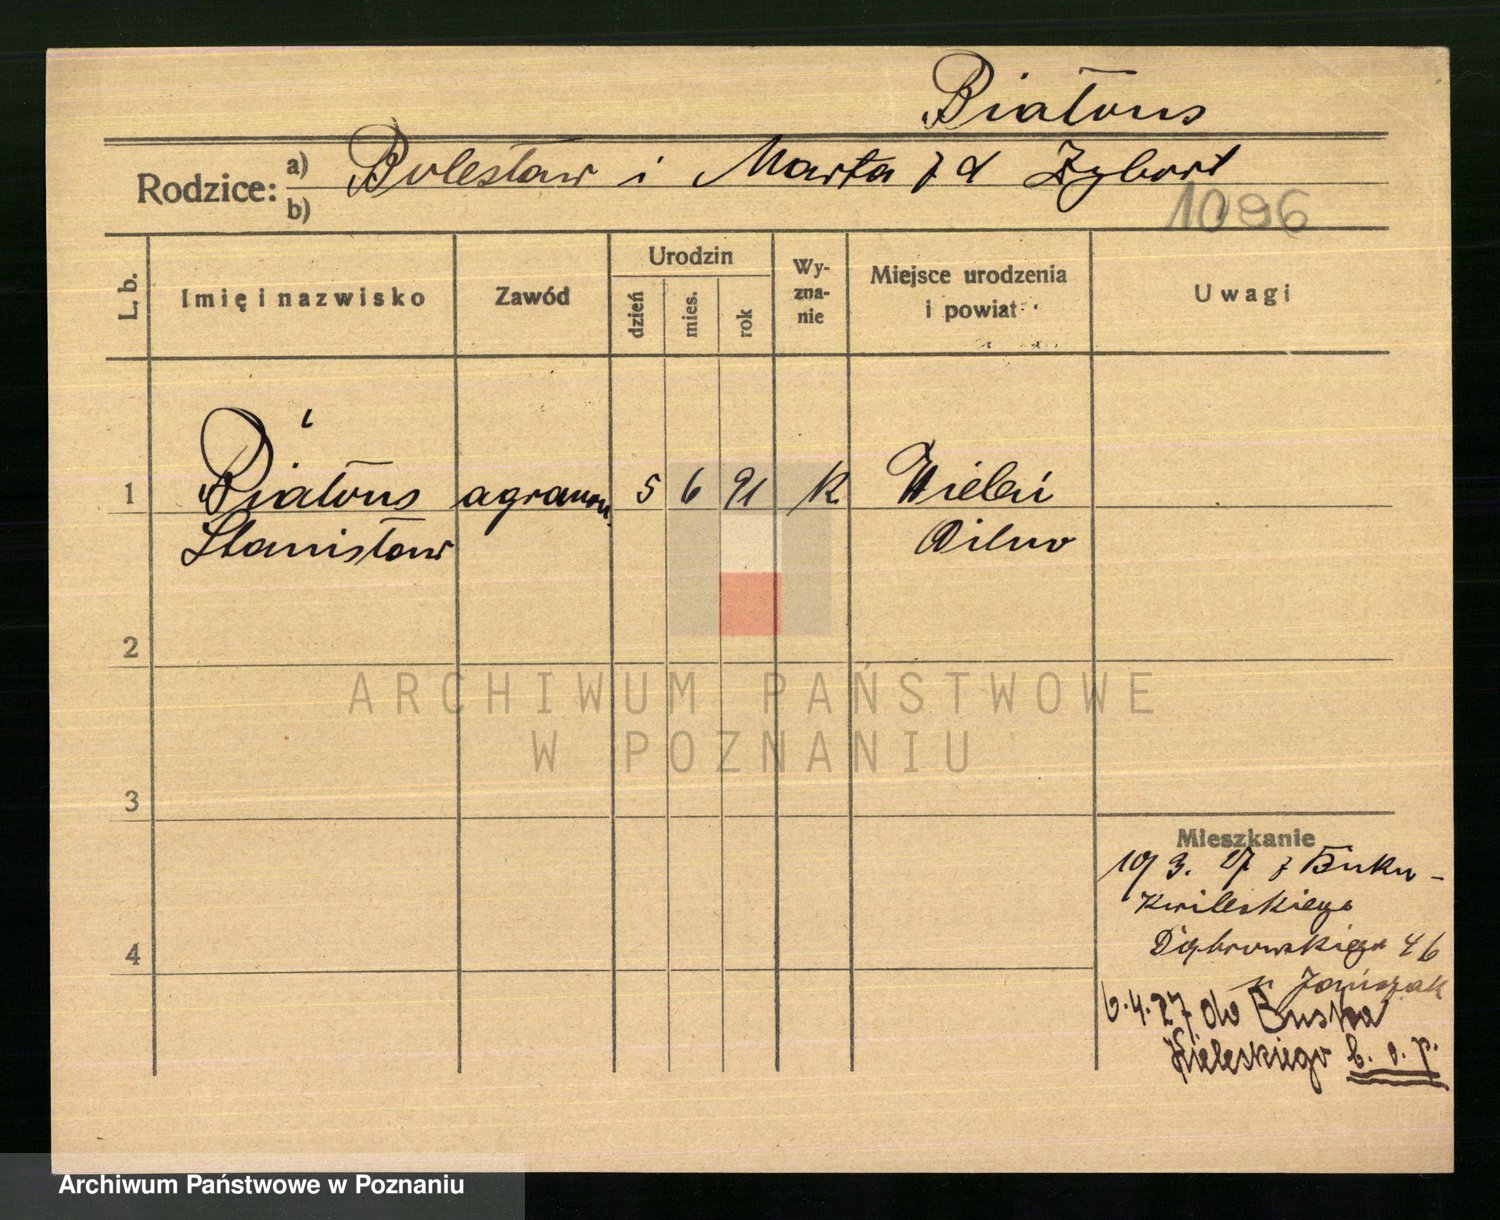 Białous
Rodzice: a) Bolesław i Marta z d Zybort
b)
1096
L. b.
Imię i nazwisko
Zawód
Urodzin
dzień
mies.
rok
Wy-
zna-
nie
Miejsce urodzenia
i powiat
Uwagi
1
Białous agronom. 5 6 91 K
Stanisław
2
3
4
Mieszkanie
3. 27 z Buku -
Dąbrowskiego 46
6.4.27 do Buska
Kieleskiego b. o. p.
ARCHIWUM PAŃSTWOWE
W POZNANIU
Archiwum Państwowe w Poznaniu